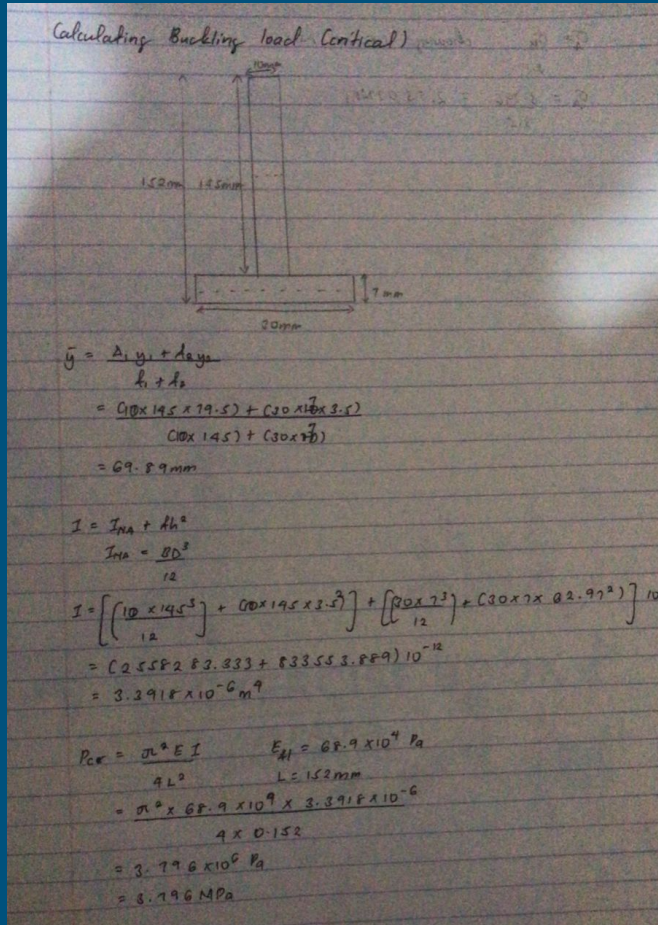 Calculating Buckling load (critical)
10mm
152mm 145mm
7mm
30mm
ȳ = A₁y₁ + A₂y₂
A₁ + A₂
= (10 x 145 x 79.5) + (30 x 7 x 3.5)
(10 x 145) + (30 x 7)
= 69.89mm
I = I_NA + Ah²
I_NA = BD³
12
I = [(10 x 145³) + (10 x 145 x 3.5²)] + [(30 x 7³) + (30 x 7 x 62.97²)] 10
12 12
= (2558283.333 + 833553.889) 10⁻¹²
= 3.3918 x 10⁻⁶ m⁴
Pcr = π² E I E_Al = 68.9 x 10⁹ Pa
4L² L = 152mm
= π² x 68.9 x 10⁹ x 3.3918 x 10⁻⁶
4 x 0.152
= 3.796 x 10⁶ Pa
= 3.796 MPa